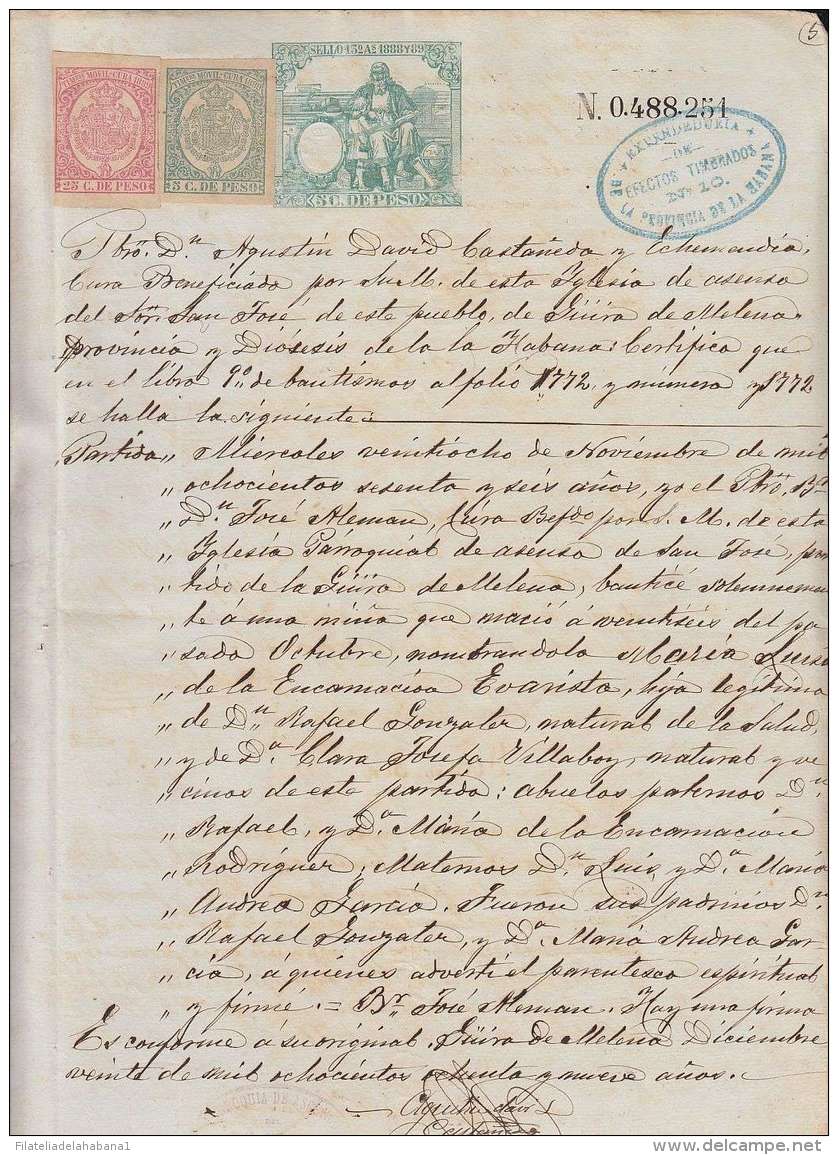 5
TIMBRE MOVIL-CUBA 1889
25 C. DE PESO
TIMBRE MOVIL-CUBA 1889
5 C. DE PESO
SELLO 13º Aº 1888 Y 89
35 C. DE PESO
N. 0.488.251
EXPENDEDURIA
DE
EFECTOS TIMBRADOS
Nº 10.
DE LA PROVINCIA DE LA HABANA
Pbro. Dn. Agustin David Castañeda y Echemendia,
Cura Beneficiado por S.M. de esta Yglesia de asenso
del Sor. San José de este pueblo, de Güira de Melena
provincia y Diósesis de la la Habana: Certifica que
en el libro 9º. de bautismos al folio 1772, y número 1772
se halla la siguiente:
Partida „ Miércoles veintiocho de Noviembre de mil
„ ochocientos sesenta y seis años, yo el Pbro. Br.
„ Dn. José Aleman, Cura Befdo por S. M. de esta
„ Yglesia Parroquial de asenso de San José, par
„ tido de la Güira de Melena, bauticé solemnemen
„ te á una niña que nació á veintiséis del pa
„ sado Octubre, nombrandola María Luisa
„ de la Encarnacion Evarista, hija legítima
„ de Dn. Rafael Gonzalez, natural de la Salud,
„ y de Da. Clara Josefa Villaboy, natural y ve
„ cinos de este partido: abuelos paternos Dn.
„ Rafael, y Da. María de la Encarnación
„ Rodríguez; Maternos Dn. Luis y Da. María
„ Andrea García. Fueron sus padrinos Dn.
„ Rafael Gonzalez, y Da. María Andrea Gar
„ cía, á quiénes advertí el parentesco espiritual
„ y firmé. = Br. José Aleman. Hay una firma
Es conforme á su original. Güira de Melena Diciembre
veinte de mil ochocientos ochenta y nueve años.
Agustin David
Castañeda
Filateliadelahabana1
delcampe.net